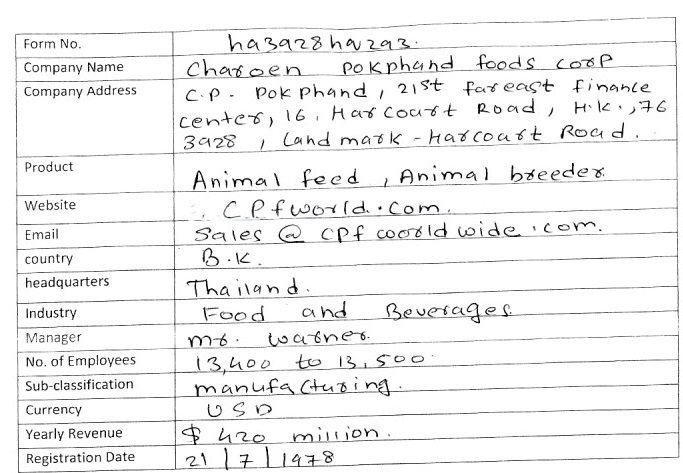 Form No. ha3928ha293.
Company Name Charoen pokphand foods corp
Company Address C.P. Pokphand, 21st fareast finance
center, 16, Harcourt Road, H.K., 76
3928, Landmark - Harcourt Road.
Product Animal feed, Animal breeder.
Website CPfworld.com.
Email Sales @ cpf woorld wide.com.
country B.K.
headquarters Thailand.
Industry Food and Beverages.
Manager mr. warner.
No. of Employees 13,400 to 13,500.
Sub-classification manufacturing.
Currency USD
Yearly Revenue $ 420 million.
Registration Date 21/7/1978